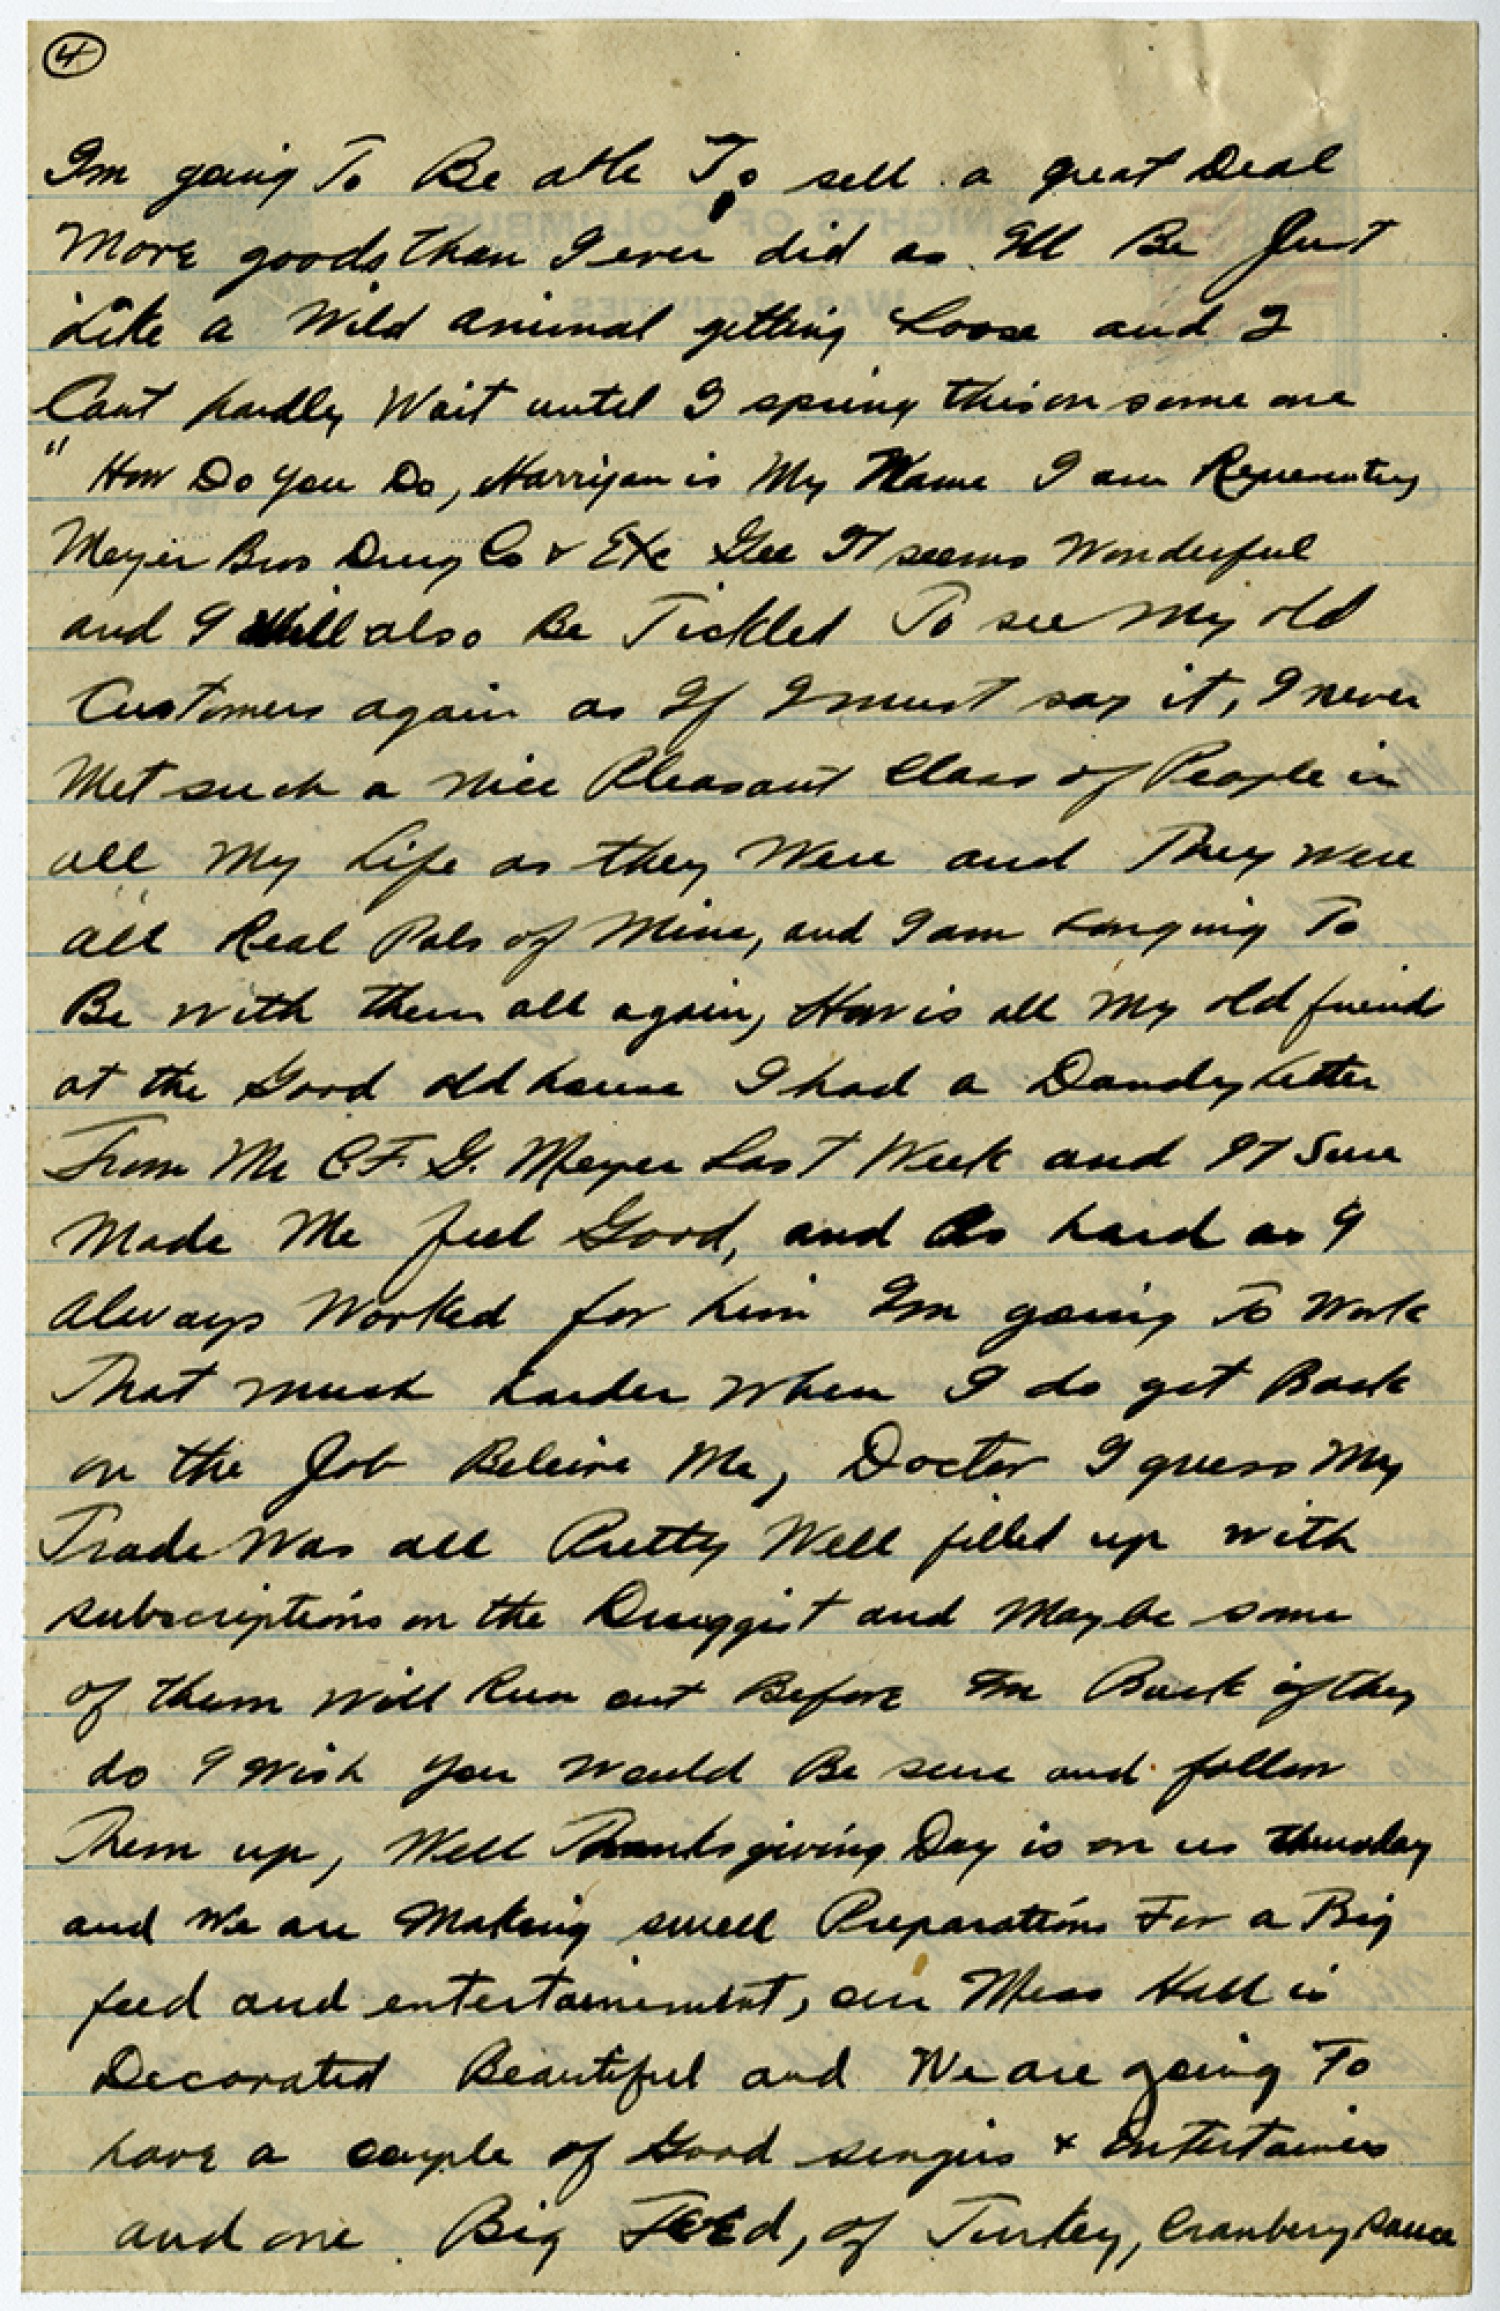 4
Im going To Be able To sell a great Deal
More goods than I ever did as Ill Be Just
Like a Wild animal getting Loose and I
Cant hardly Wait until I spring this on some one
" How Do You Do, Harrigan is My Name I am Representing
Meyer Bros Drug Co & Etc Gee It seems Wonderful
and I Will also Be Tickled To see My old
Customers again as If I must say it, I never
Met such a nice Pleasant Class of People in
all My Life as they Were and They were
all Real Pals of Mine, and I am Longing To
Be with them all again, How is all My old friends
at the Good old house I had a Dandy Letter
From Mr C.F.G. Meyer Last Week and It Sure
Made Me feel Good, and As hard as I
always Worked for him Im going To Work
That much harder when I do get Back
on the Job Beleive Me, Doctor I guess My
Trade Was all Pretty Well filled up with
subscriptions on the Druggist and Maybe some
of them Will Run out Before Im Back if they
do I Wish You Would Be sure and follow
Them up, Well Thanksgiving Day is on us thursday
and We are Making swell Preparations For a Big
feed and entertainement, our Mess Hall is
Decorated Beautiful and We are going To
have a couple of Good singers & Entertainers
and one Big Feed, of Turkey, Cranberry Sauce
KNIGHTS OF COLUMBUS
WAR ACTIVITIES